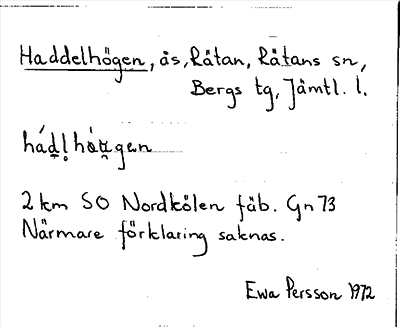 Haddelhögen, ås, Råtan, Råtans sn,
Bergs tg, Jämtl. l.
hád̲l̥ hȯ́u̯gen
2 km SO Nordkölen fäb. Gn 73
Närmare förklaring saknas.
Ewa Persson 1972